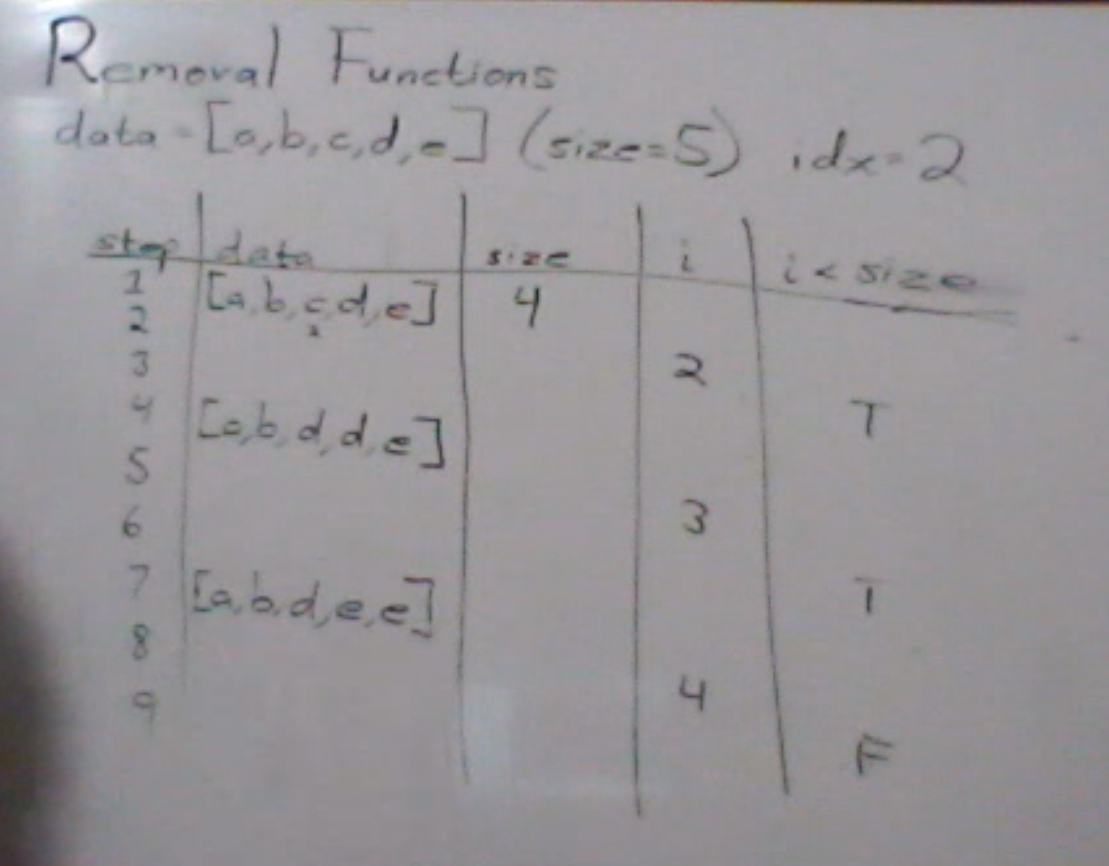 Removal Functions
data = [a,b,c,d,e] (size=5) idx=2
step data size i i < size
1 [a,b,c,d,e] 4
2
3 2
4 [a,b,d,d,e] T
5
6 3
7 [a,b,d,e,e] T
8
9 4
F